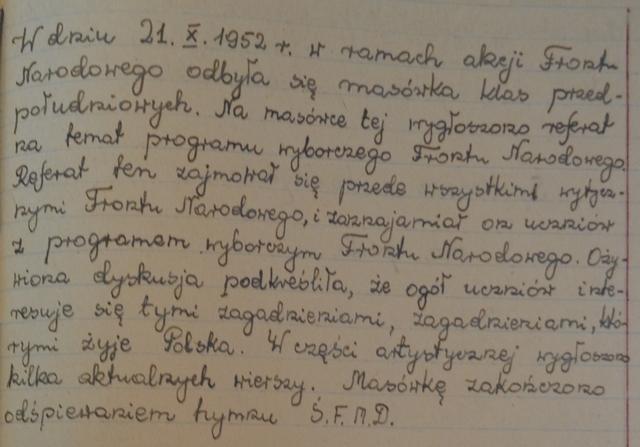 W dniu 21. X. 1952 r. w ramach akcji Frontu
Narodowego odbyła się masówka klas przed-
południowych. Na masówce tej wygłoszono referat
na temat programu wyborczego Frontu Narodowego.
Referat ten zajmował się przede wszystkimi wytycz-
nymi Frontu Narodowego, i zaznajamiał on uczniów
z programem wyborczym Frontu Narodowego. Oży-
wiona dyskusja podkreśliła, że ogół uczniów inte-
resuje się tymi zagadnieniami, zagadnieniami, któ-
rymi żyje Polska. W części artystycznej wygłoszono
kilka aktualnych wierszy. Masówkę zakończono
odśpiewaniem hymnu Ś.F.M.D.